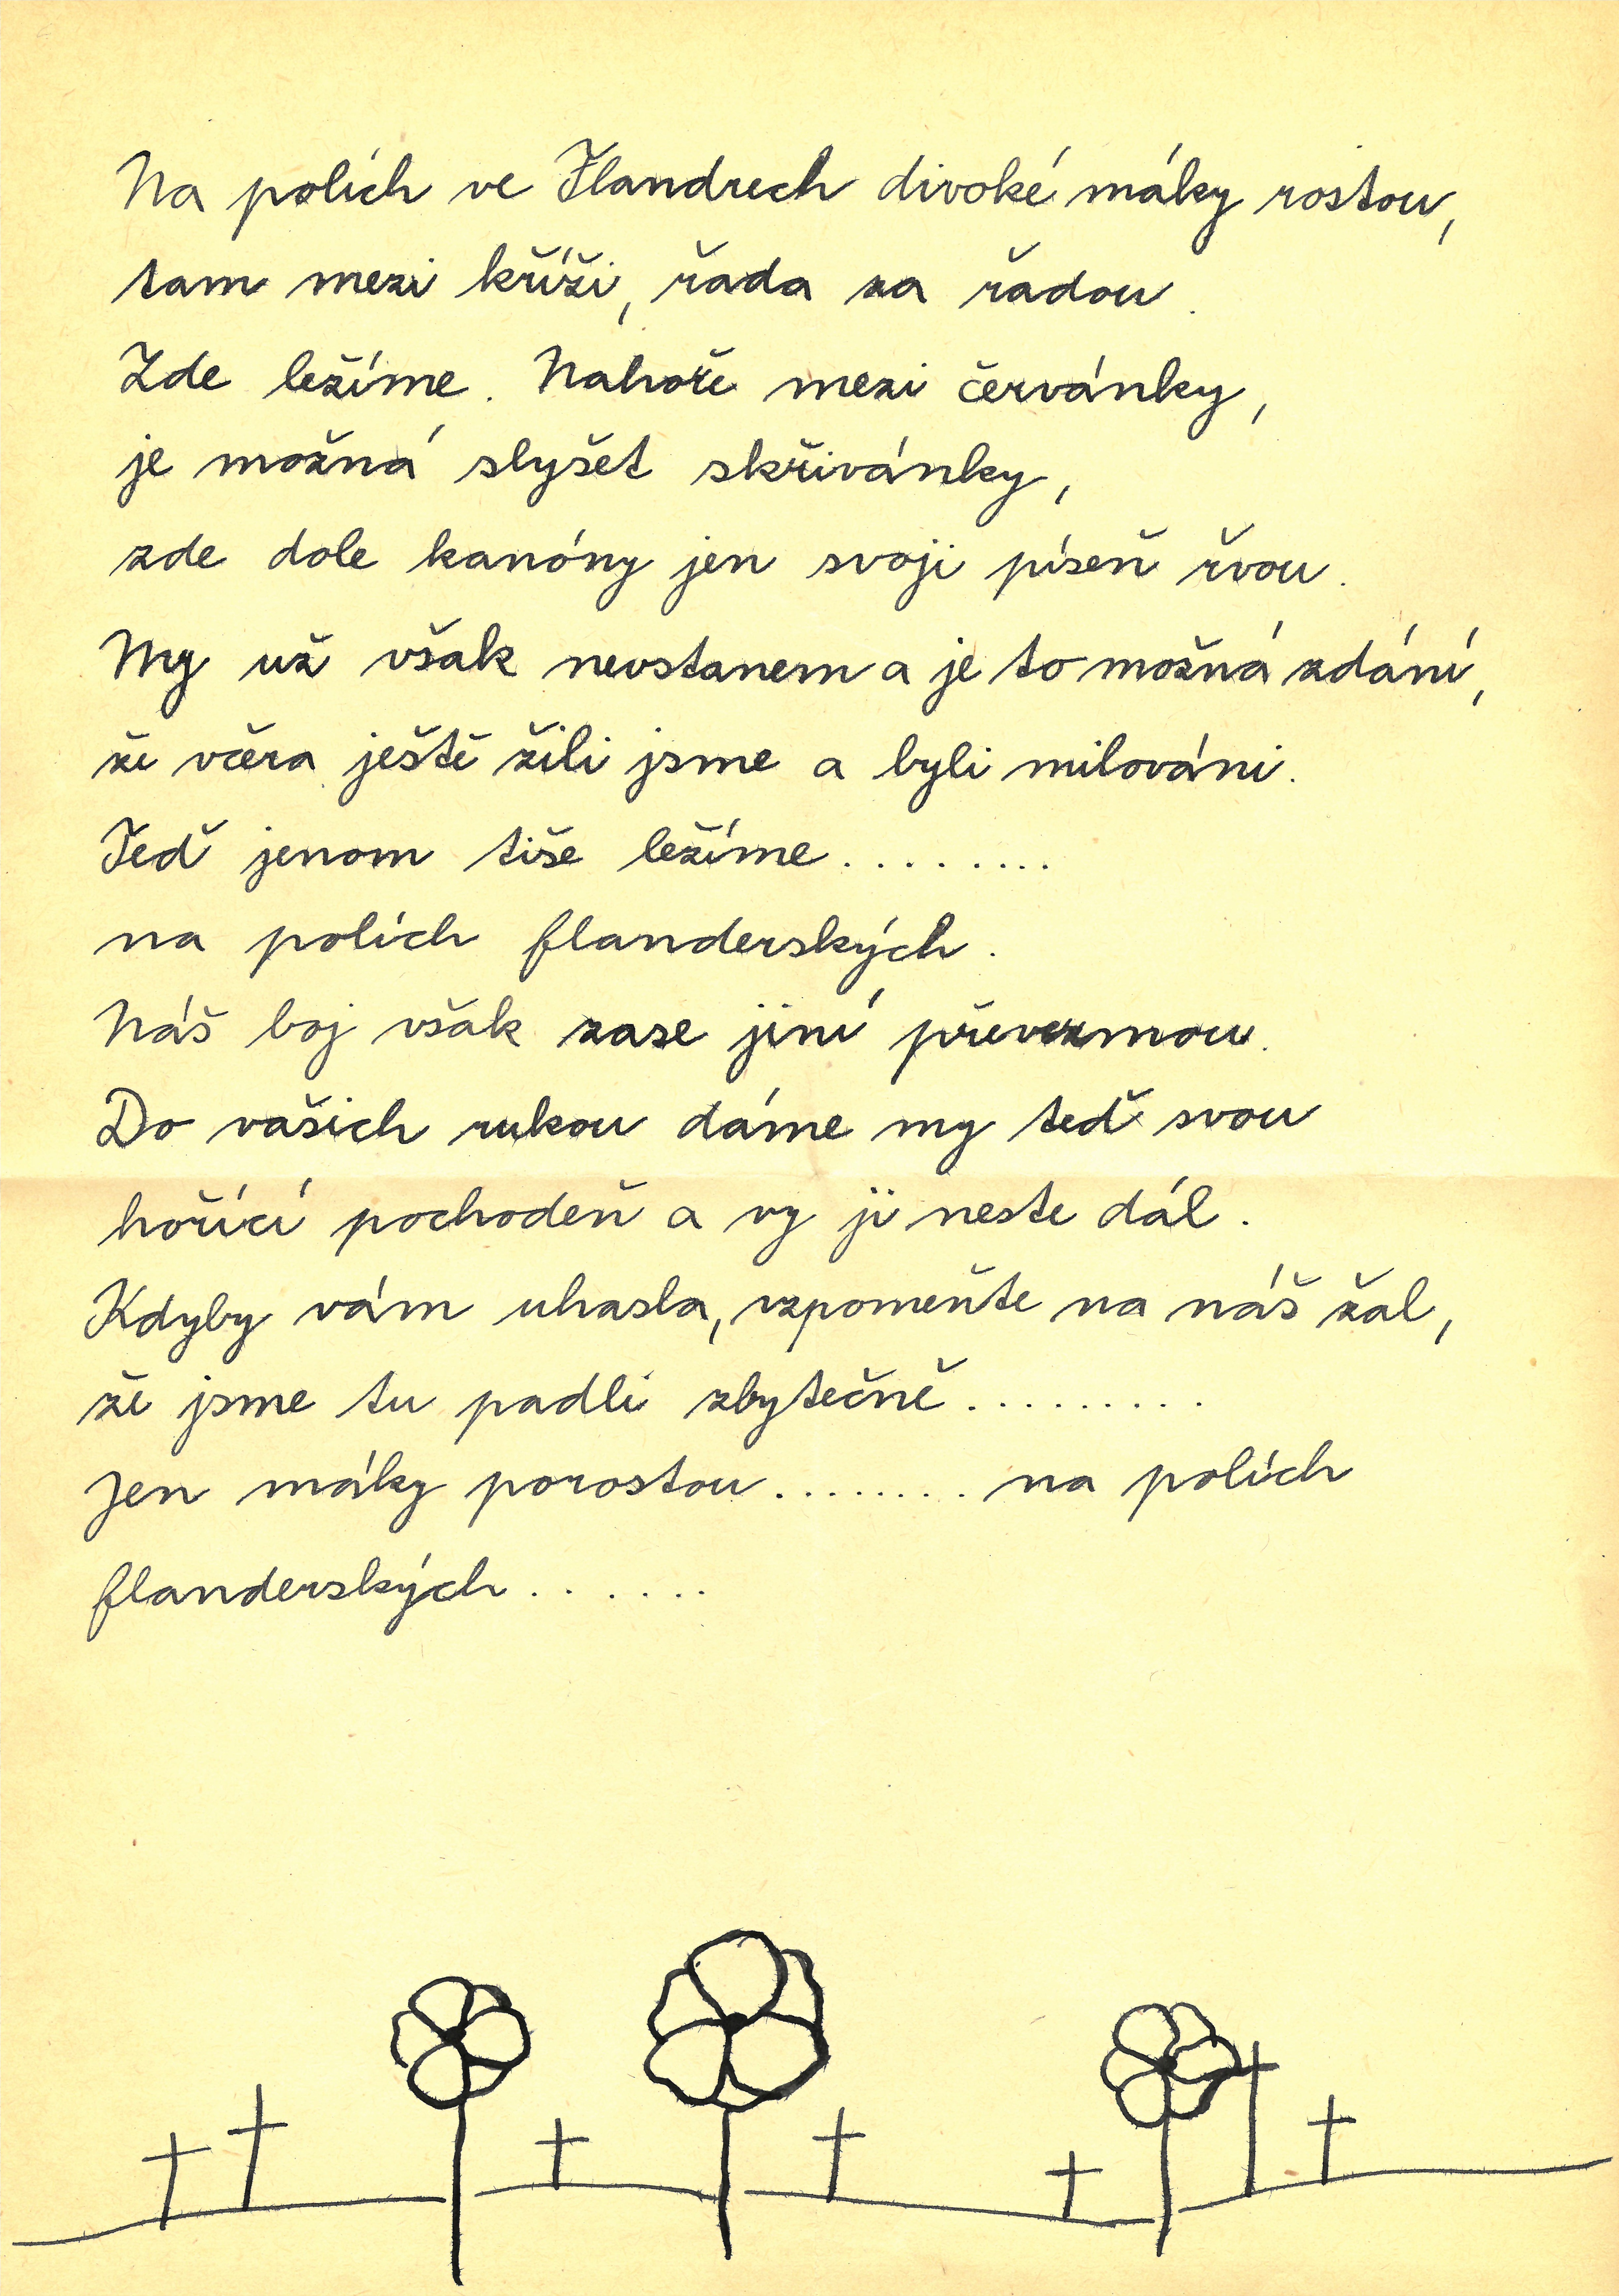 Na polích ve Flandrech divoké máky rostou,
tam mezi kříži, řada za řadou.
Zde ležíme. Nahoře mezi červánky,
je možná slyšet skřivánky,
zde dole kanóny jen svoji píseň řvou.
My už však nevstanem a je to možná zdání,
že včera ještě žili jsme a byli milováni.
Teď jenom tiše ležíme.........
na polích flanderských.
Náš boj však zase jiní převezmou.
Do vašich rukou dáme my teď svou
hořící pochodeň a vy ji neste dál.
Kdyby vám uhasla, vzpomeňte na náš žal,
že jsme tu padli zbytečně.........
Jen máky porostou........ na polích
flanderských.......